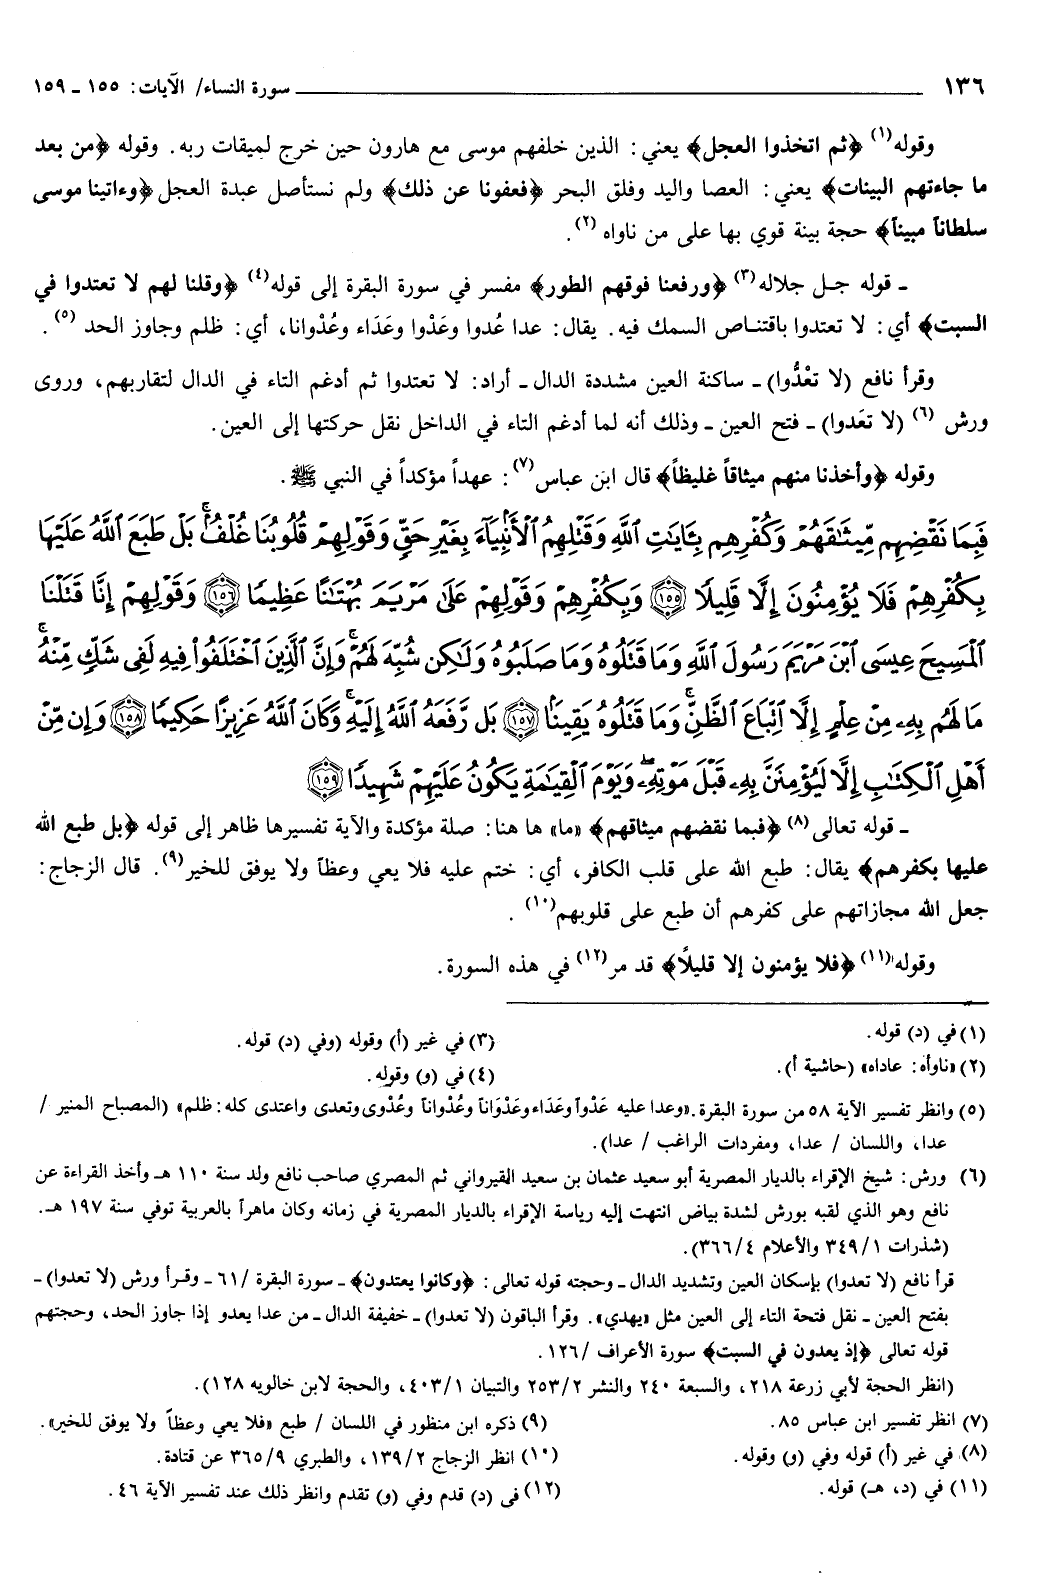 ١٣٦ سورة النساء/ الآيات: ١٥٥ ـ ١٥٩
وقوله(١) ﴿ثم اتخذوا العجل﴾ يعني: الذين خلفهم موسى مع هارون حين خرج لميقات ربه. وقوله ﴿من بعد
ما جاءتهم البينات﴾ يعني: العصا واليد وفلق البحر ﴿فعفونا عن ذلك﴾ ولم نستأصل عبدة العجل ﴿وءاتينا موسى
سلطاناً مبيناً﴾ حجة بينة قوي بها على من ناواه(٢).
ـ قوله جـل جلاله(٣) ﴿ورفعنا فوقهم الطور﴾ مفسر في سورة البقرة إلى قوله(٤) ﴿وقلنا لهم لا تعتدوا في
السبت﴾ أي: لا تعتدوا باقتنـاص السمك فيه. يقال: عدا عُدوا وعَدْوا وعَدَاء وعُدْوانا، أي: ظلم وجاوز الحد(٥).
وقرأ نافع (لا تعْدُّوا) ـ ساكنة العين مشددة الدال ـ أراد: لا تعتدوا ثم أدغم التاء في الدال لتقاربهم، وروى
ورش(٦) (لا تعَدوا) ـ فتح العين ـ وذلك أنه لما أدغم التاء في الداخل نقل حركتها إلى العين.
وقوله ﴿وأخذنا منهم ميثاقاً غليظاً﴾ قال ابن عباس(٧): عهداً مؤكداً في النبي ﷺ.
فَبِمَا نَقْضِهِم مِّيثَٰقَهُمْ وَكُفْرِهِم بِـَٔايَٰتِ ٱللَّهِ وَقَتْلِهِمُ ٱلْأَنۢبِيَآءَ بِغَيْرِ حَقٍّ وَقَوْلِهِمْ قُلُوبُنَا غُلْفٌۢ ۚ بَلْ طَبَعَ ٱللَّهُ عَلَيْهَا
بِكُفْرِهِمْ فَلَا يُؤْمِنُونَ إِلَّا قَلِيلًا ﴿١٥٥﴾ وَبِكُفْرِهِمْ وَقَوْلِهِمْ عَلَىٰ مَرْيَمَ بُهْتَٰنًا عَظِيمًا ﴿١٥٦﴾ وَقَوْلِهِمْ إِنَّا قَتَلْنَا
ٱلْمَسِيحَ عِيسَى ٱبْنَ مَرْيَمَ رَسُولَ ٱللَّهِ وَمَا قَتَلُوهُ وَمَا صَلَبُوهُ وَلَٰكِن شُبِّهَ لَهُمْ ۚ وَإِنَّ ٱلَّذِينَ ٱخْتَلَفُوا۟ فِيهِ لَفِى شَكٍّ مِّنْهُ ۚ
مَا لَهُم بِهِۦ مِنْ عِلْمٍ إِلَّا ٱتِّبَاعَ ٱلظَّنِّ ۚ وَمَا قَتَلُوهُ يَقِينًۢا ﴿١٥٧﴾ بَل رَّفَعَهُ ٱللَّهُ إِلَيْهِ ۚ وَكَانَ ٱللَّهُ عَزِيزًا حَكِيمًا ﴿١٥٨﴾ وَإِن مِّنْ
أَهْلِ ٱلْكِتَٰبِ إِلَّا لَيُؤْمِنَنَّ بِهِۦ قَبْلَ مَوْتِهِۦ ۖ وَيَوْمَ ٱلْقِيَٰمَةِ يَكُونُ عَلَيْهِمْ شَهِيدًا ﴿١٥٩﴾
ـ قوله تعالى(٨) ﴿فبما نقضهم ميثاقهم﴾ «ما» ها هنا: صلة مؤكدة والآية تفسيرها ظاهر إلى قوله ﴿بل طبع الله
عليها بكفرهم﴾ يقال: طبع الله على قلب الكافر، أي: ختم عليه فلا يعي وعظاً ولا يوفق للخير(٩). قال الزجاج:
جعل الله مجازاتهم على كفرهم أن طبع على قلوبهم(١٠).
وقوله(١١) ﴿فلا يؤمنون إلا قليلاً﴾ قد مر(١٢) في هذه السورة.
(١) في (د) قوله.
(٢) «ناوأه: عاداه» (حاشية أ).
(٣) في غير (أ) وقوله (وفي (د) قوله.
(٤) في (و) وقوله.
(٥) وانظر تفسير الآية ٥٨ من سورة البقرة. «وعدا عليه عَدْواً وعَدَاء وعَدْوَاناً وعُدْواناً وعُدْوى وتعدى واعتدى كله: ظلم» (المصباح المنير /
عدا، واللسان / عدا، ومفردات الراغب / عدا).
(٦) ورش: شيخ الإقراء بالديار المصرية أبو سعيد عثمان بن سعيد القيرواني ثم المصري صاحب نافع ولد سنة ١١٠ هـ وأخذ القراءة عن
نافع وهو الذي لقبه بورش لشدة بياض انتهت إليه رياسة الإقراء بالديار المصرية في زمانه وكان ماهراً بالعربية توفي سنة ١٩٧ هـ.
(شذرات ٣٤٩/١ والأعلام ٣٦٦/٤).
قرأ نافع (لا تعدوا) بإسكان العين وتشديد الدال ـ وحجته قوله تعالى: ﴿وكانوا يعتدون﴾ ـ سورة البقرة /٦١ ـ وقـرأ ورش (لا تعدوا) ـ
بفتح العين ـ نقل فتحة التاء إلى العين مثل «يهدي». وقرأ الباقون (لا تعدوا) ـ خفيفة الدال ـ من عدا يعدو إذا جاوز الحد، وحجتهم
قوله تعالى ﴿إذ يعدون في السبت﴾ سورة الأعراف /١٢٦.
(انظر الحجة لأبي زرعة ٢١٨، والسبعة ٢٤٠ والنشر ٢٥٣/٢ والتبيان ٤٠٣/١، والحجة لابن خالويه ١٢٨).
(٧) انظر تفسير ابن عباس ٨٥.
(٨) في غير (أ) قوله وفي (و) وقوله.
(١١) في (د، هـ) قوله.
(٩) ذكره ابن منظور في اللسان / طبع «فلا يعي وعظاً ولا يوفق للخير».
(١٠) انظر الزجاج ١٣٩/٢، والطبري ٣٦٥/٩ عن قتادة.
(١٢) في (د) قدم وفي (و) تقدم وانظر ذلك عند تفسير الآية ٤٦.